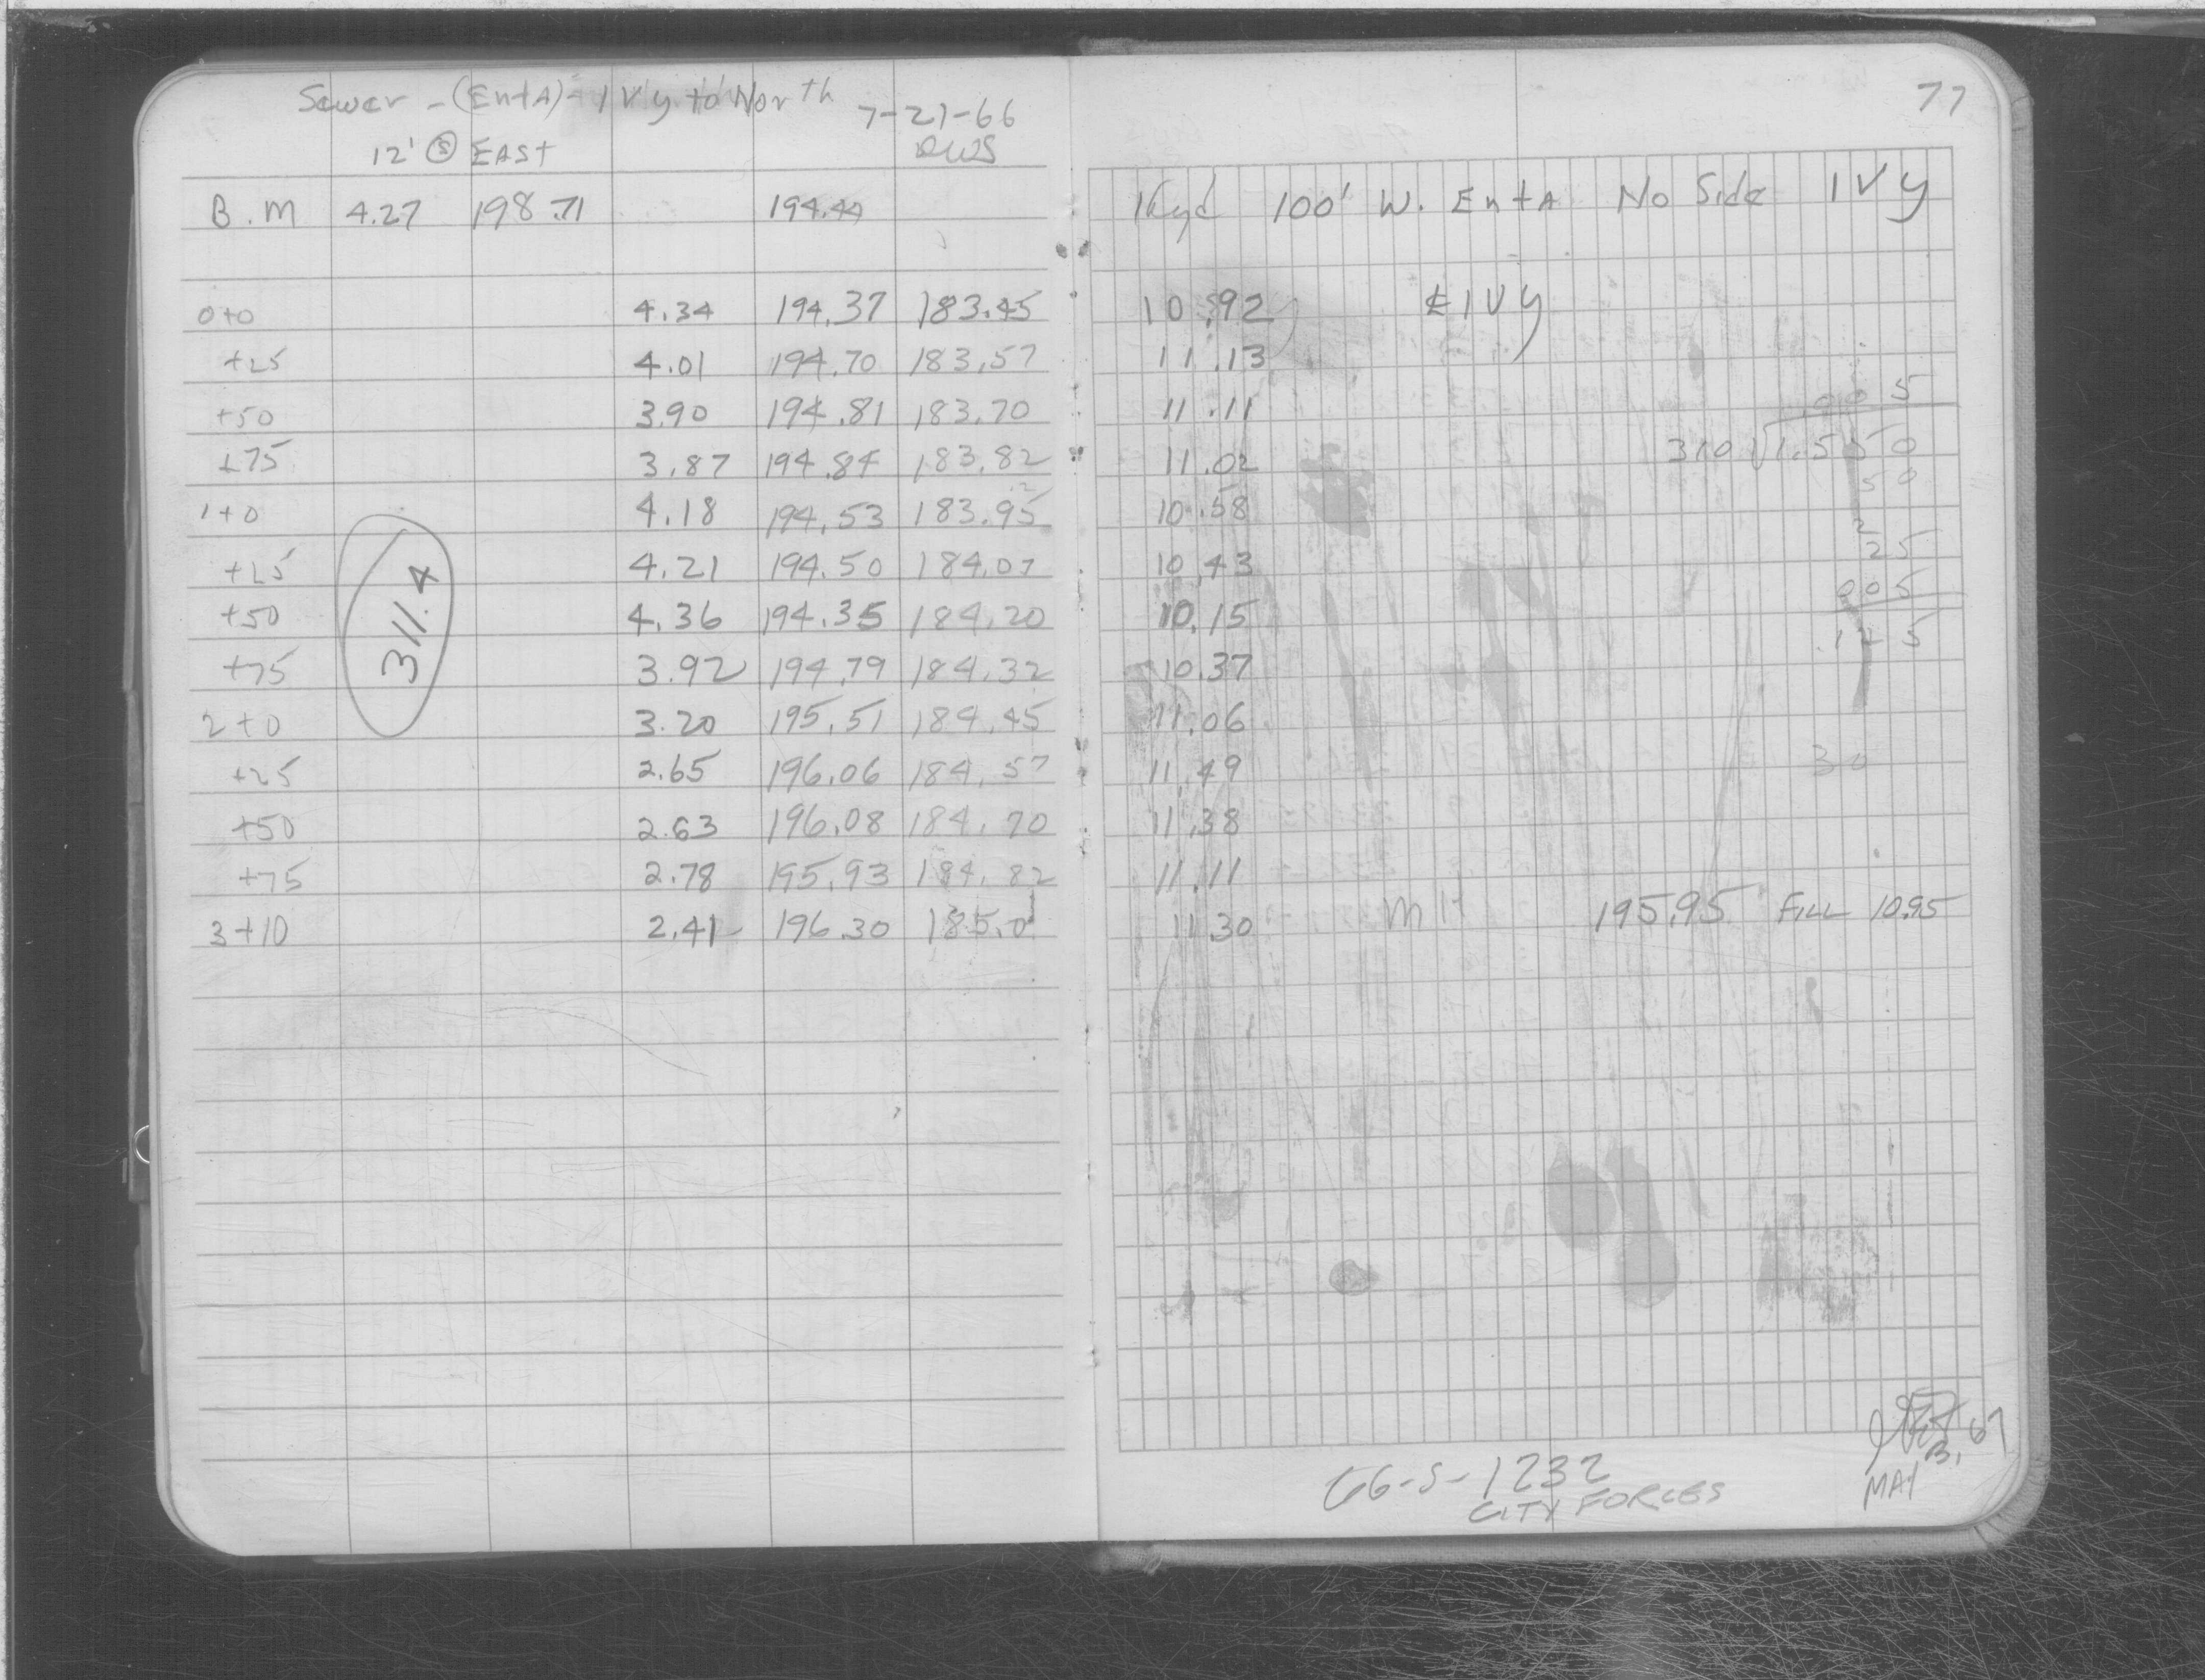 Sewer - (EntA) - IVy to North 7-21-66
12' Ⓢ EAST DWS
77
B.M 4.27 198.71 194.44 Hyd 100' W. EntA No Side IVy
0+0 4.34 194.37 183.45 10.92 ℄ IVy
+25 4.01 194.70 183.57 11.13
+50 3.90 194.81 183.70 11.11
+75 3.87 194.84 183.82 11.02
1+0 4.18 194.53 183.95 10.58
+25 4.21 194.50 184.07 10.43
+50 4.36 194.35 184.20 10.15
+75 3.92 194.79 184.32 10.37
2+0 3.20 195.51 184.45 11.06
+25 2.65 196.06 184.57 11.49
+50 2.63 196.08 184.70 11.38
+75 2.78 195.93 184.82 11.11
3+10 2.41 196.30 185.0 11.30 MH 195.95 FILL 10.95
311.4
.005
310 √1.550
50
2
25
005
.125
30
66-S-1232
CITY FORCES
MAY 3, 67